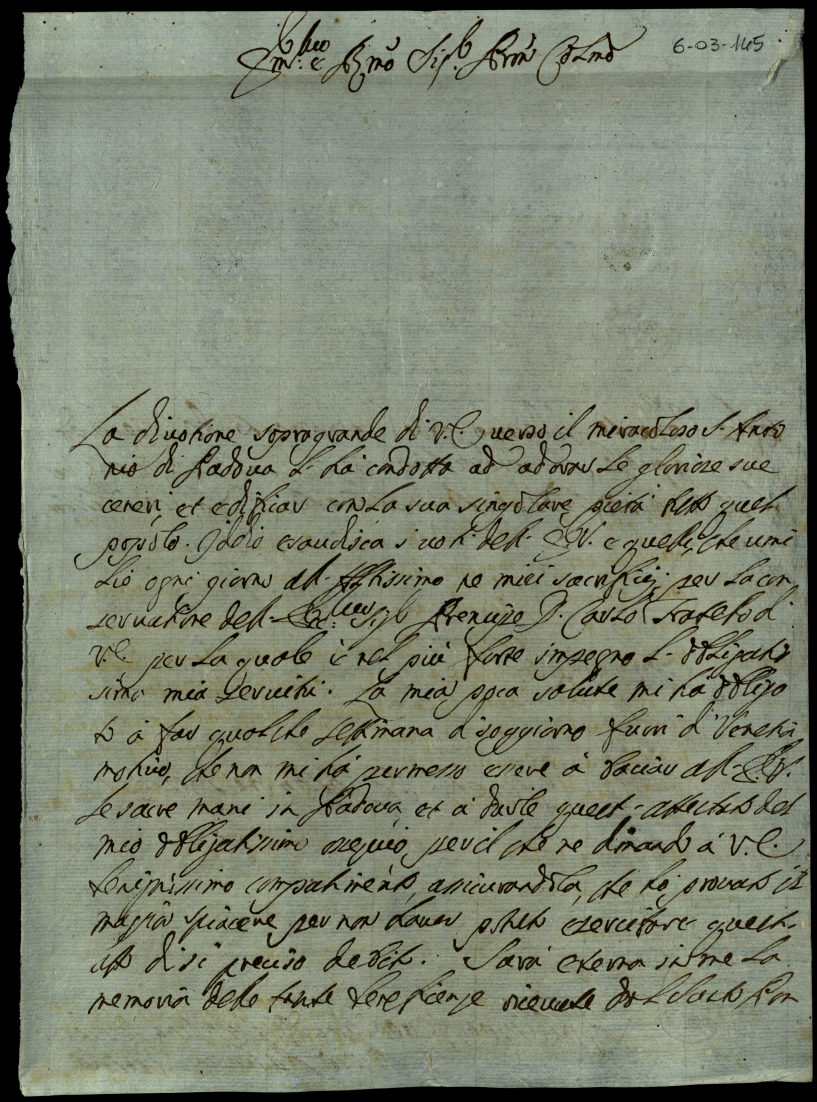 6-03-145
Em.mo e R.mo Sig.r Pron Colmo
La divotione sopragrande di V.E. verso il miracoloso S. Anto
nio di Padova l'hà condotta ad adorar le gloriose sue
ceneri, et edificar con la sua singolare pietà quel
popolo. Iddio esaudisca i voti dell' E.V. e quelli, che umi
lio ogni giorno all' Altissimo ne miei sacrificij per la con
servatione dell' Sig.r D. Carlo fratello di
V.E. per la quale è nel più forte impegno l'obligatis
sima mia servitù. La mia poca salute mi hà obliga
to à far qualche settimana di soggiorno fuori di Venetia
motivo, che non mi hà permesso essere à baciar all' E.V.
le sacre mani in Padova, et à darle quest' attestato del
mio obligatissimo ossequio, per il che ne dimando à V.E.
benignissimo compatimento, assicurandola, che hò provato il
maggior spiacere per non haver potuto esercitare quest'
atto di sì preciso debito. Sarà eterna in me la
memoria delle tante beneficenze ricevute dal